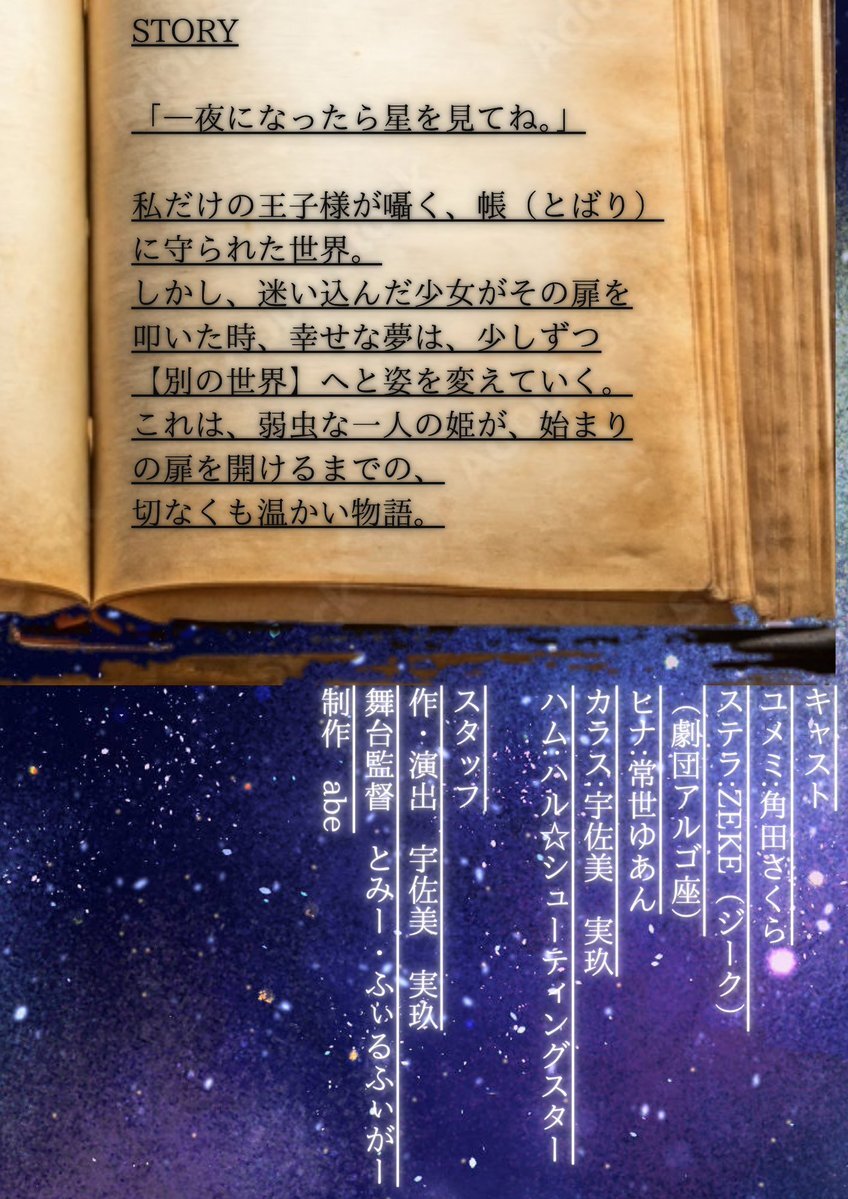 STORY
「―夜になったら星を見てね。」
私だけの王子様が囁く、帳（とばり）
に守られた世界。
しかし、迷い込んだ少女がその扉を
叩いた時、幸せな夢は、少しずつ
【別の世界】へと姿を変えていく。
これは、弱虫な一人の姫が、始まり
の扉を開けるまでの、
切なくも温かい物語。
キャスト
ユメミ:角田さくら
ステラ:ZEKE（ジーク）
（劇団アルゴ座）
ヒナ:常世ゆあん
カラス:宇佐美　実玖
ハム:ハル☆シューティングスター
スタッフ
作・演出　宇佐美　実玖
舞台監督　とみー・ふぃるふぃがー
制作　abe